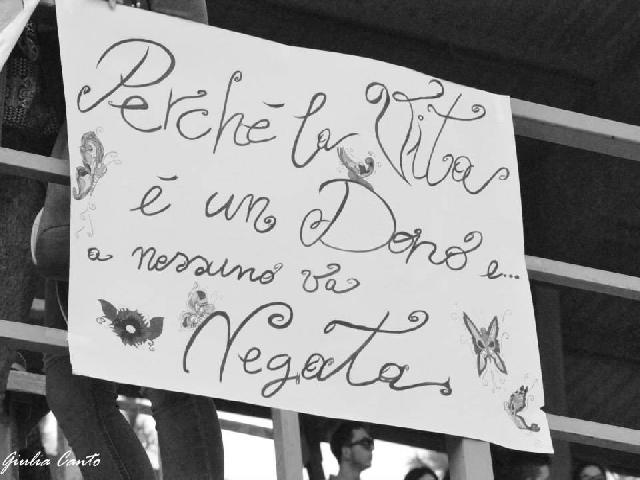 Perchè la Vita
è un Dono e...
a nessuno va
Negata
Giulia Canto